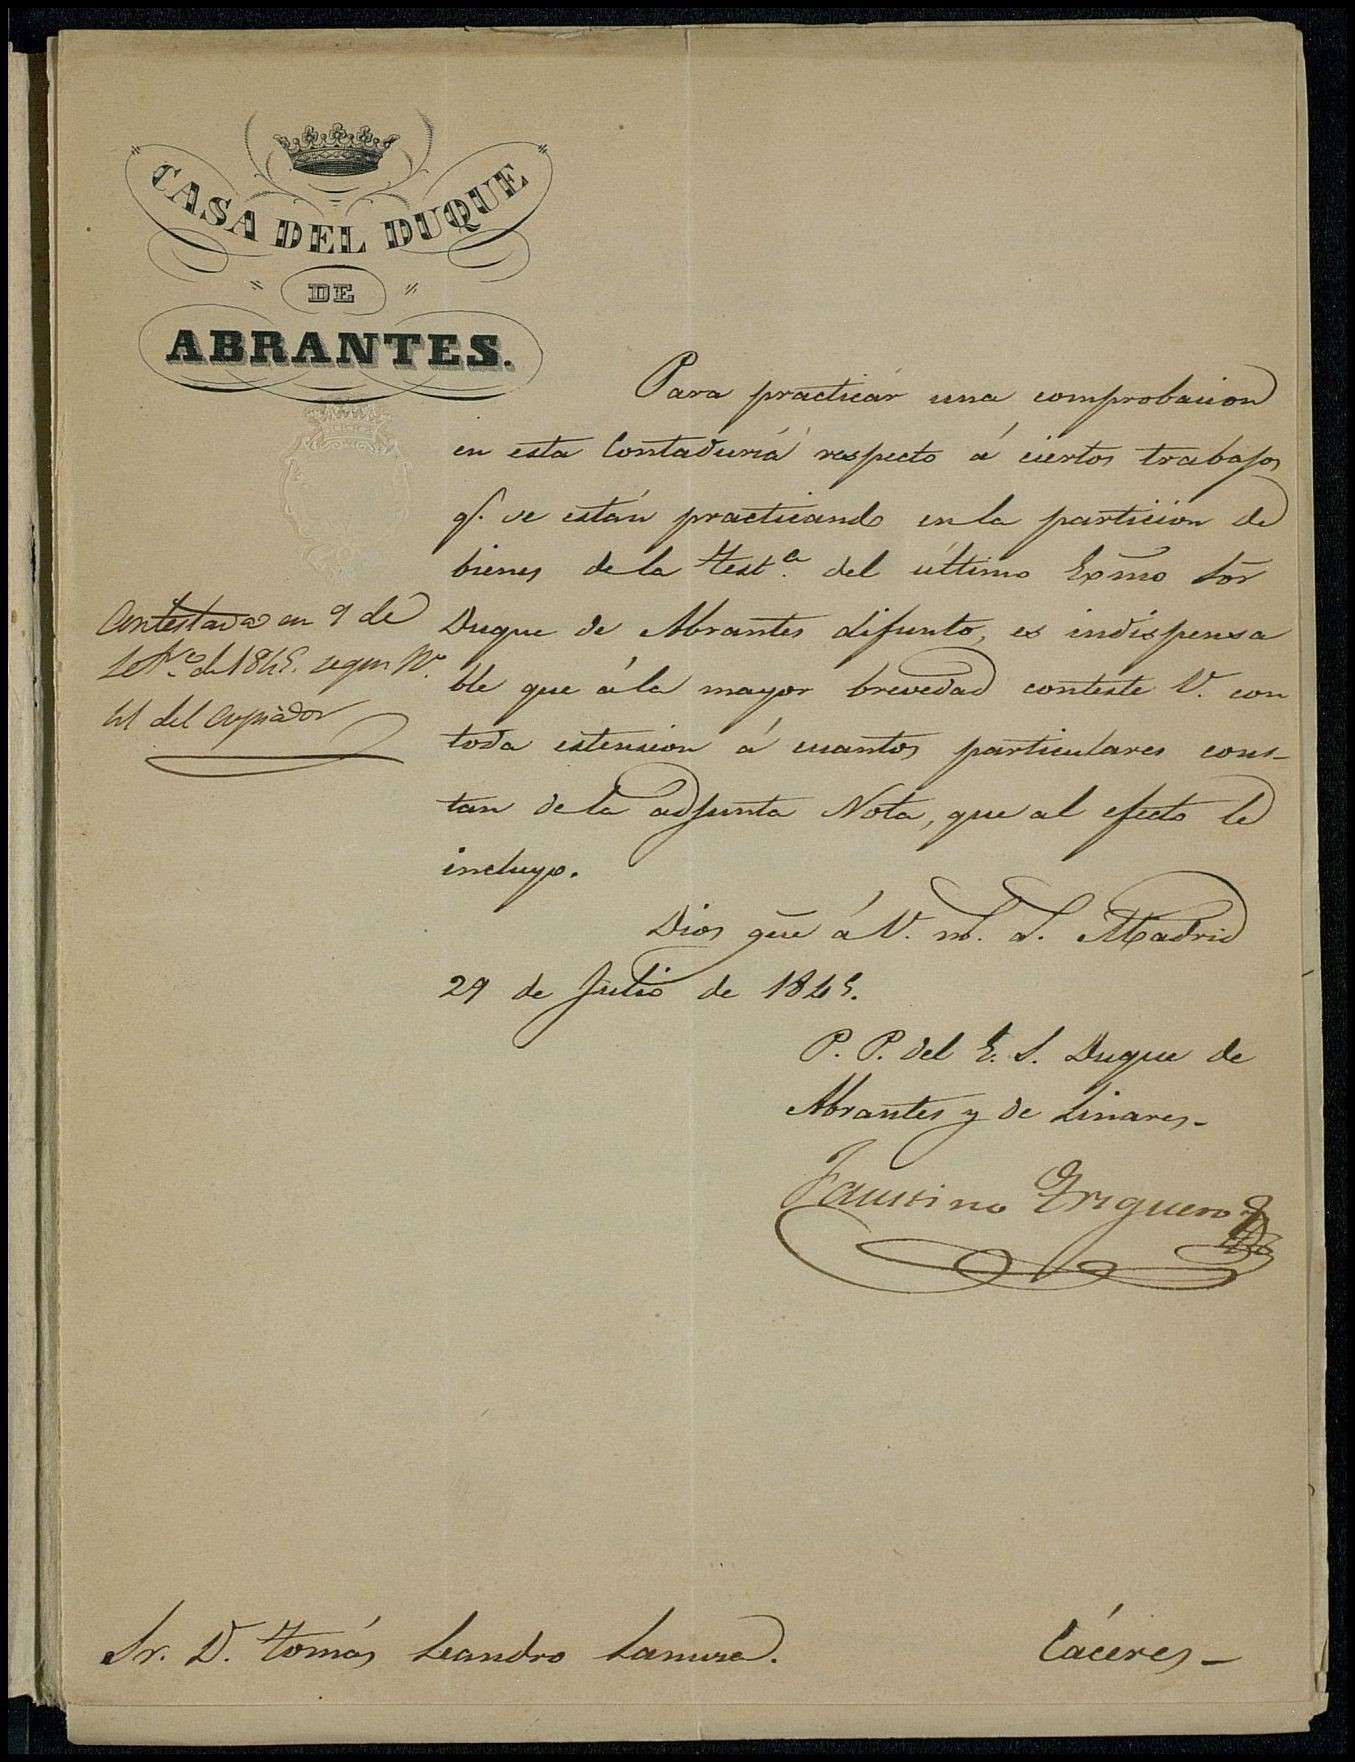 CASA DEL DUQUE
DE
ABRANTES.
Para practicar una comprobacion
en esta Contaduría respecto á ciertos trabajos
q.e se están practicando en la particion de
bienes de la Test.a del último Exmo Sor
Duque de Abrantes difunto, es indispensa
ble que á la mayor brevedad conteste V. con
toda estension á cuantos particulares cons-
tan de la adjunta Nota, que al efecto le
incluyo.
Dios gũe á V. m. a. Madrid
29 de Julio de 1845.
P. P. del E. S. Duque de
Abrantes y de Linares-
Faustino Trigueros
Contestada en 9 de
de 1845. segun N.o
del Copiador
Sr. D. Tomás Leandro
Cáceres-